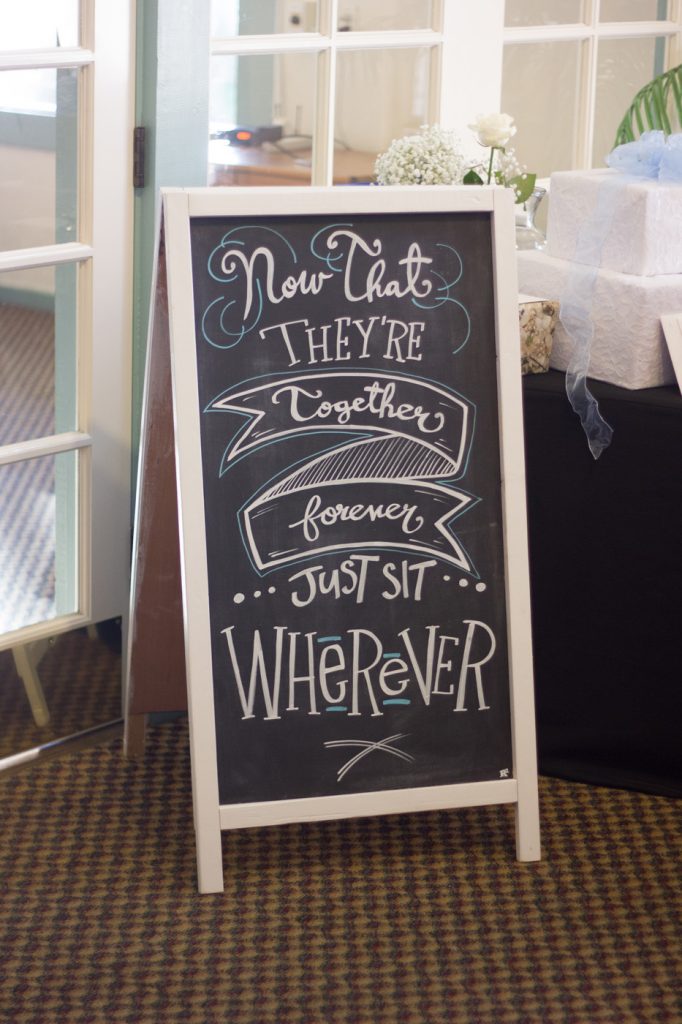 Now That
THEY'RE
Together
forever
...JUST SIT...
WHEREVER